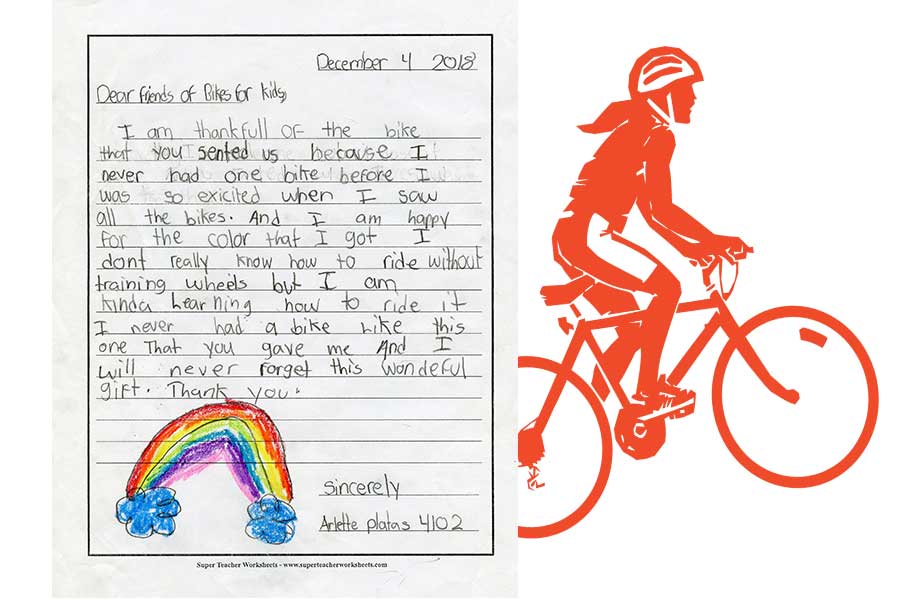 December 4 2018
Dear friends of Bikes for kids,
I am thankfull of the bike
that you sented us because I
never had one bike before I
was so exicited when I saw
all the bikes. And I am happy
for the color that I got I
dont really know how to ride without
training wheels but I am
kinda Learning how to ride it
I never had a bike Like this
one That you gave me And I
will never forget this wondeful
gift. Thank you.
sincerely
Arlette platas 4102
Super Teacher Worksheets - www.superteacherworksheets.com